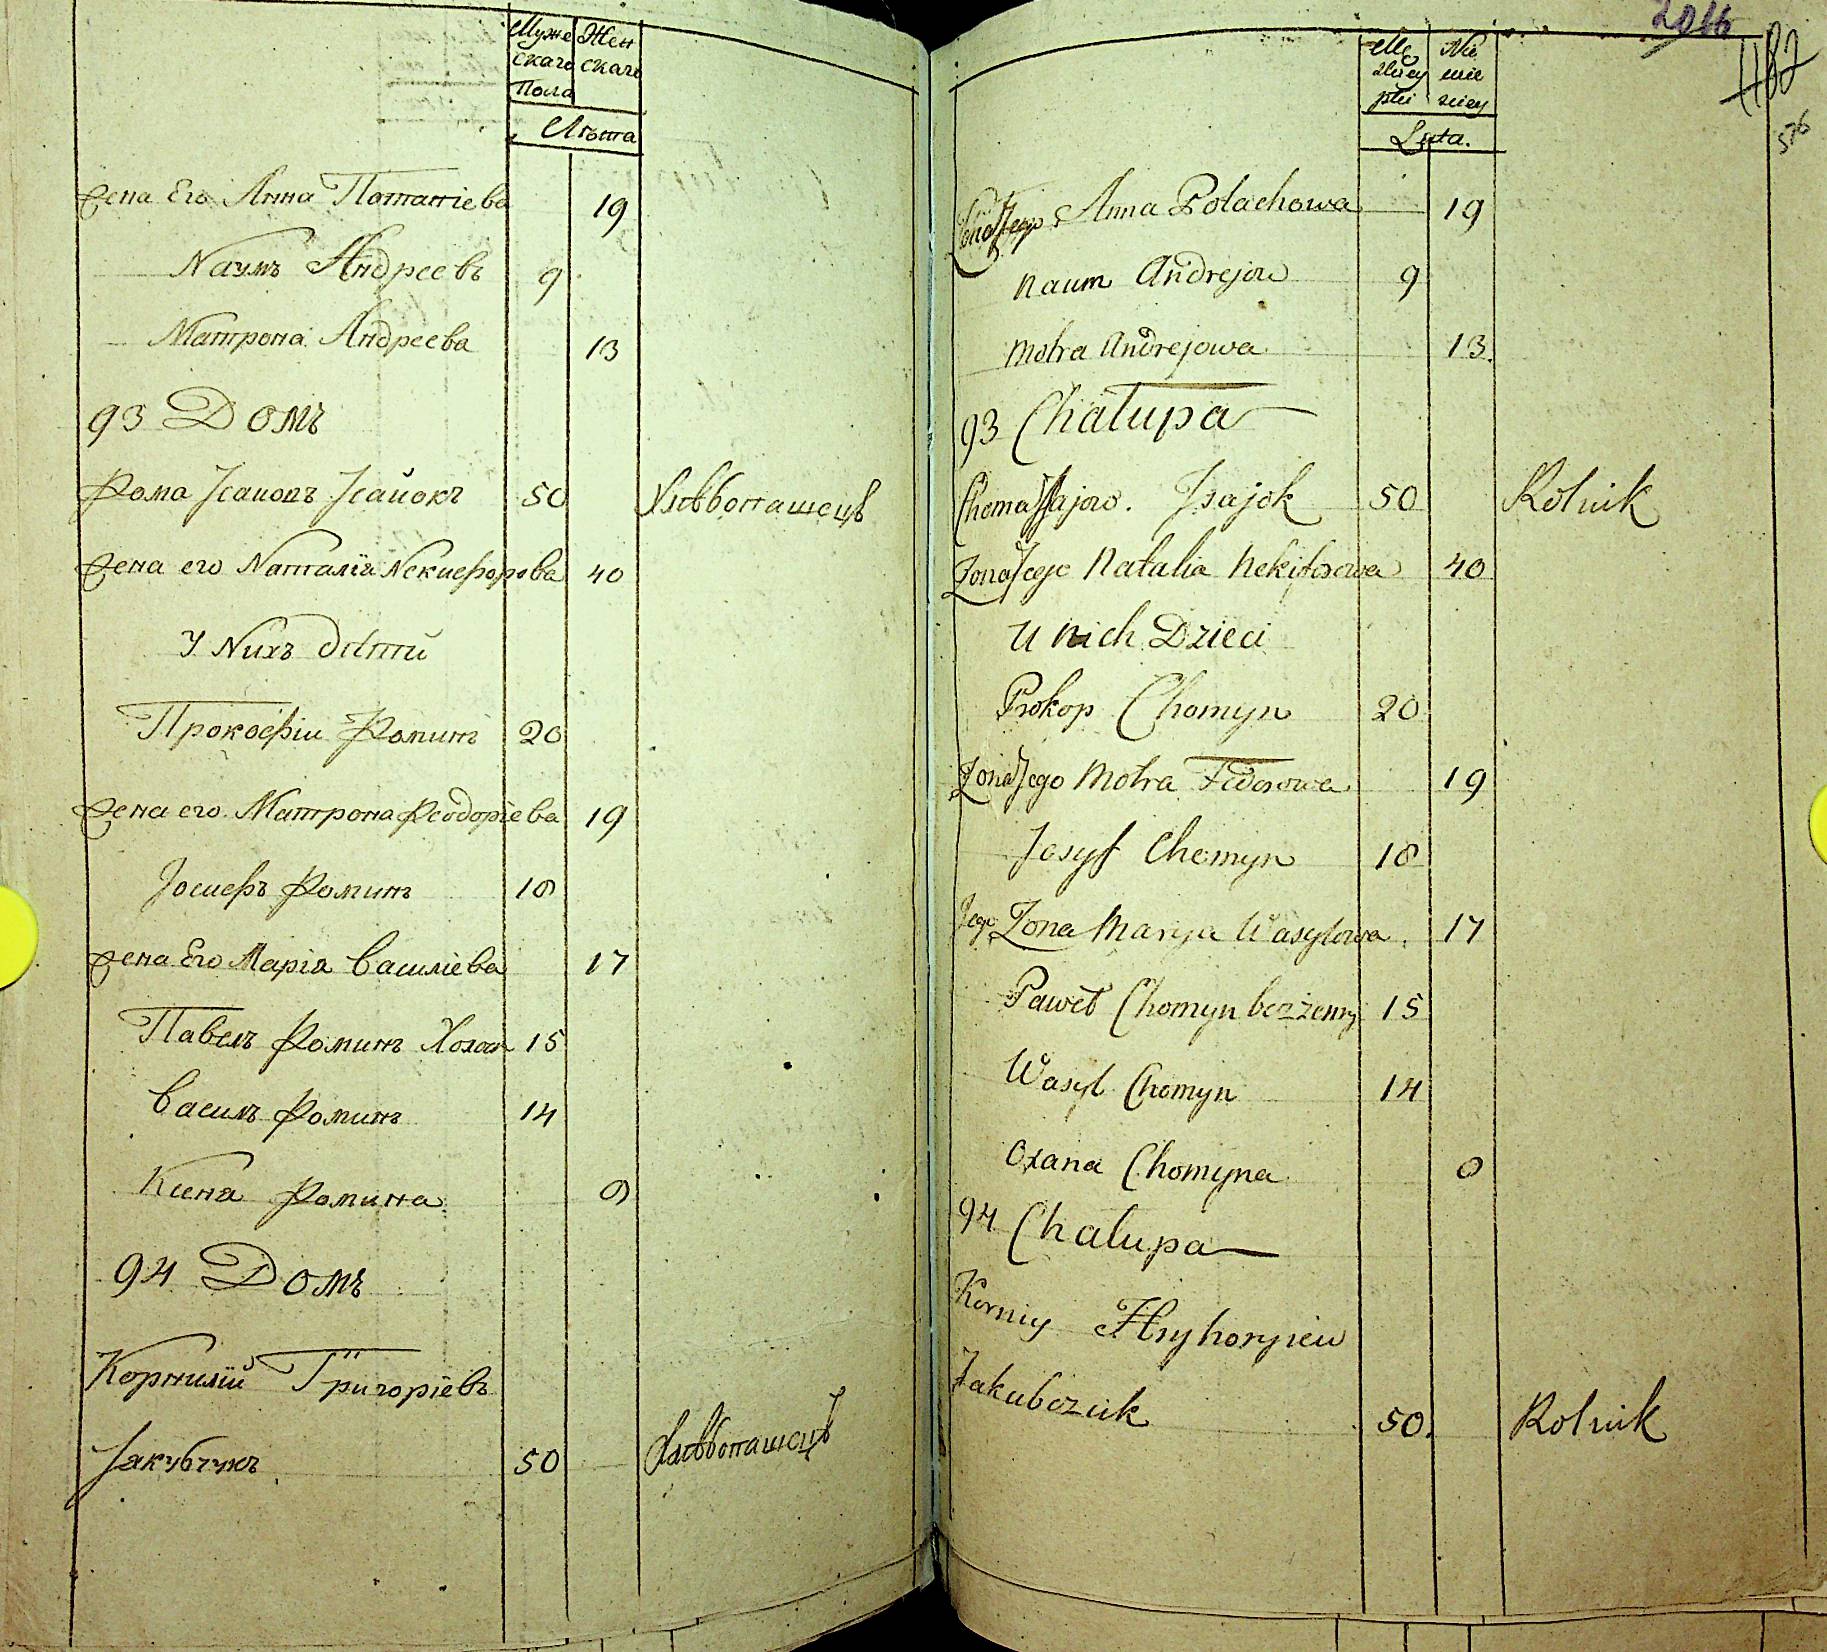 Муже Жен
скаго скаго
Пола
Лѣта
Жена Его Анна Потапіева 19
Наумъ Андреевъ 9
Матрона Андреева 13
93 Домъ
Фома Ісаіовъ Ісаіокъ 50 Хлѣбопашецъ
Жена его Наталія Некиефорова 40
У Нихъ дѣтй
Прокофіи Фоминъ 20
Жена его Матрона Феодоріева 19
Іосиефъ Фоминъ 18
Жена Его Марія Василіева 17
Павелъ Фоминъ Холост 15
Василъ Фоминъ 14
Ксеня Фомина 8
94 Домъ
Корнилій Григоріевъ
Якубчукъ 50 Хлѣбопашецъ
2016
482
576
Mę Nie
zkiey wie
płci sciey
Lata.
Żona Jego Anna Potachowa 19
Naum Andrejow 9
Motra Andrejowa 13.
93 Chałupa
Choma Isajow. Isajok 50 Rolnik
Zona Jego Natalia Nekiforowa 40
U nich Dzieci
Prokop Chomyn 20
Zona Jego Motra Fedorowa 19
Josyf Chomyn 18
Jego Zona Marya Wasylowa. 17
Paweł Chomyn bezżenny 15
Wasyl Chomyn 14
Oxana Chomyna 8
94 Chalupa
Korniy Hryhoryiew
Jakubczuk 50. Rolnik